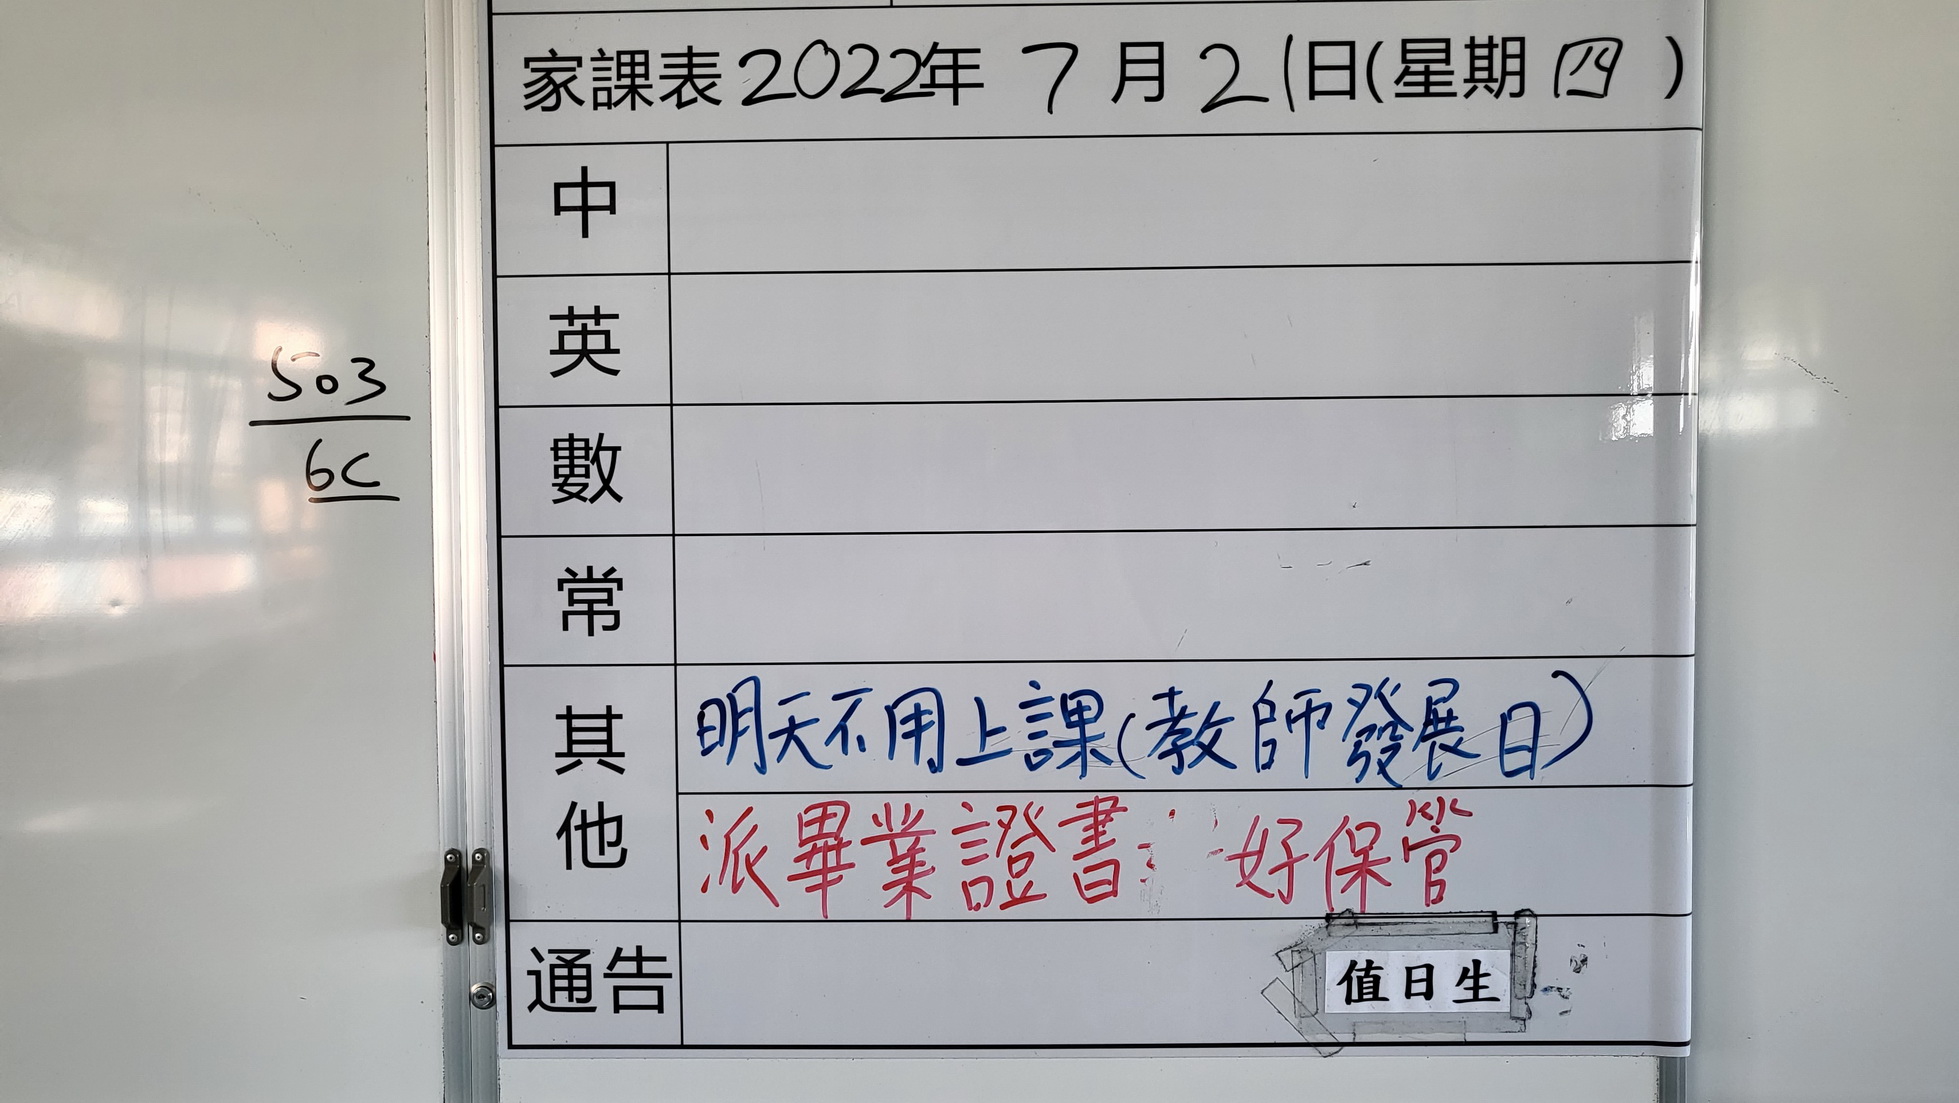 家課表2022年 7月21日(星期四)
中
英
數
常
其他
明天不用上課(教師發展日)
派畢業證書: 好保管
通告
值日生
503
6C